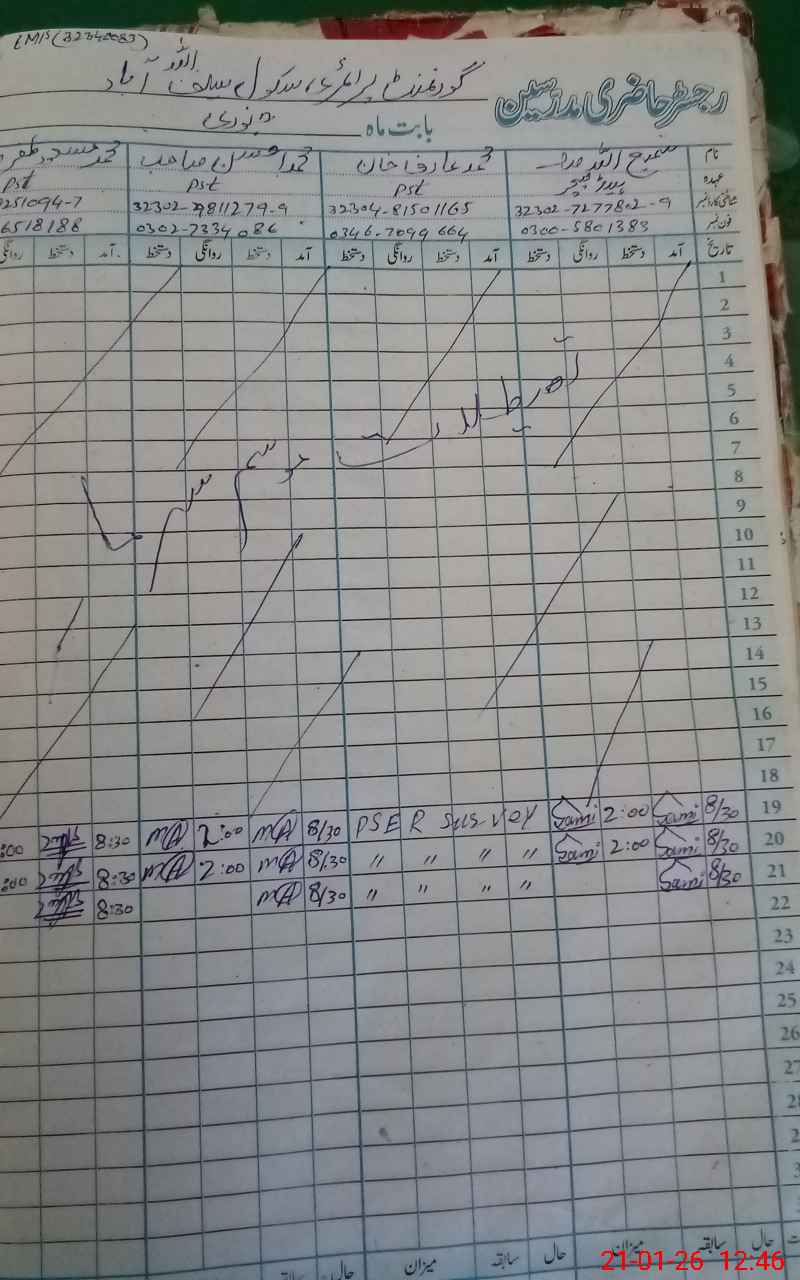 EMIS (32340083)
گورنمنٹ پرائمری سکول سیف اللہ آباد
رجسٹر حاضری مدرسین
بابت ماہ جنوری
نام سمیع اللہ محمد عارف خان محمد صاحب محمد
عہدہ ہیڈ ٹیچر PST PST PST
شناختی کارڈ نمبر 32302-7277802-9 32304-81501165 32302-9811279-9 251094-7
فون نمبر 0300-5801383 0346-7099664 0302-7334086 6518188
تاریخ آمد دستخط روانگی دستخط آمد دستخط روانگی دستخط آمد دستخط روانگی دستخط آمد دستخط روانگی
1
2
3
4
5
6
7
8
9
10
11
12
13
14
15
16
17
18
تعطیلات موسم سرما
19 8/30 Sami 2:00 Sami PSER Survey 8/30 MA 2:00 MA 8:30 :00
20 8/30 Sami 2:00 Sami " " " " 8/30 MA 2:00 MA 8:30 :00
21 8/30 Sami " " " " 8/30 MA 8:30
22
23
24
25
26
27
حال سابقہ میزان حال سابقہ میزان
21-01-26 12:46